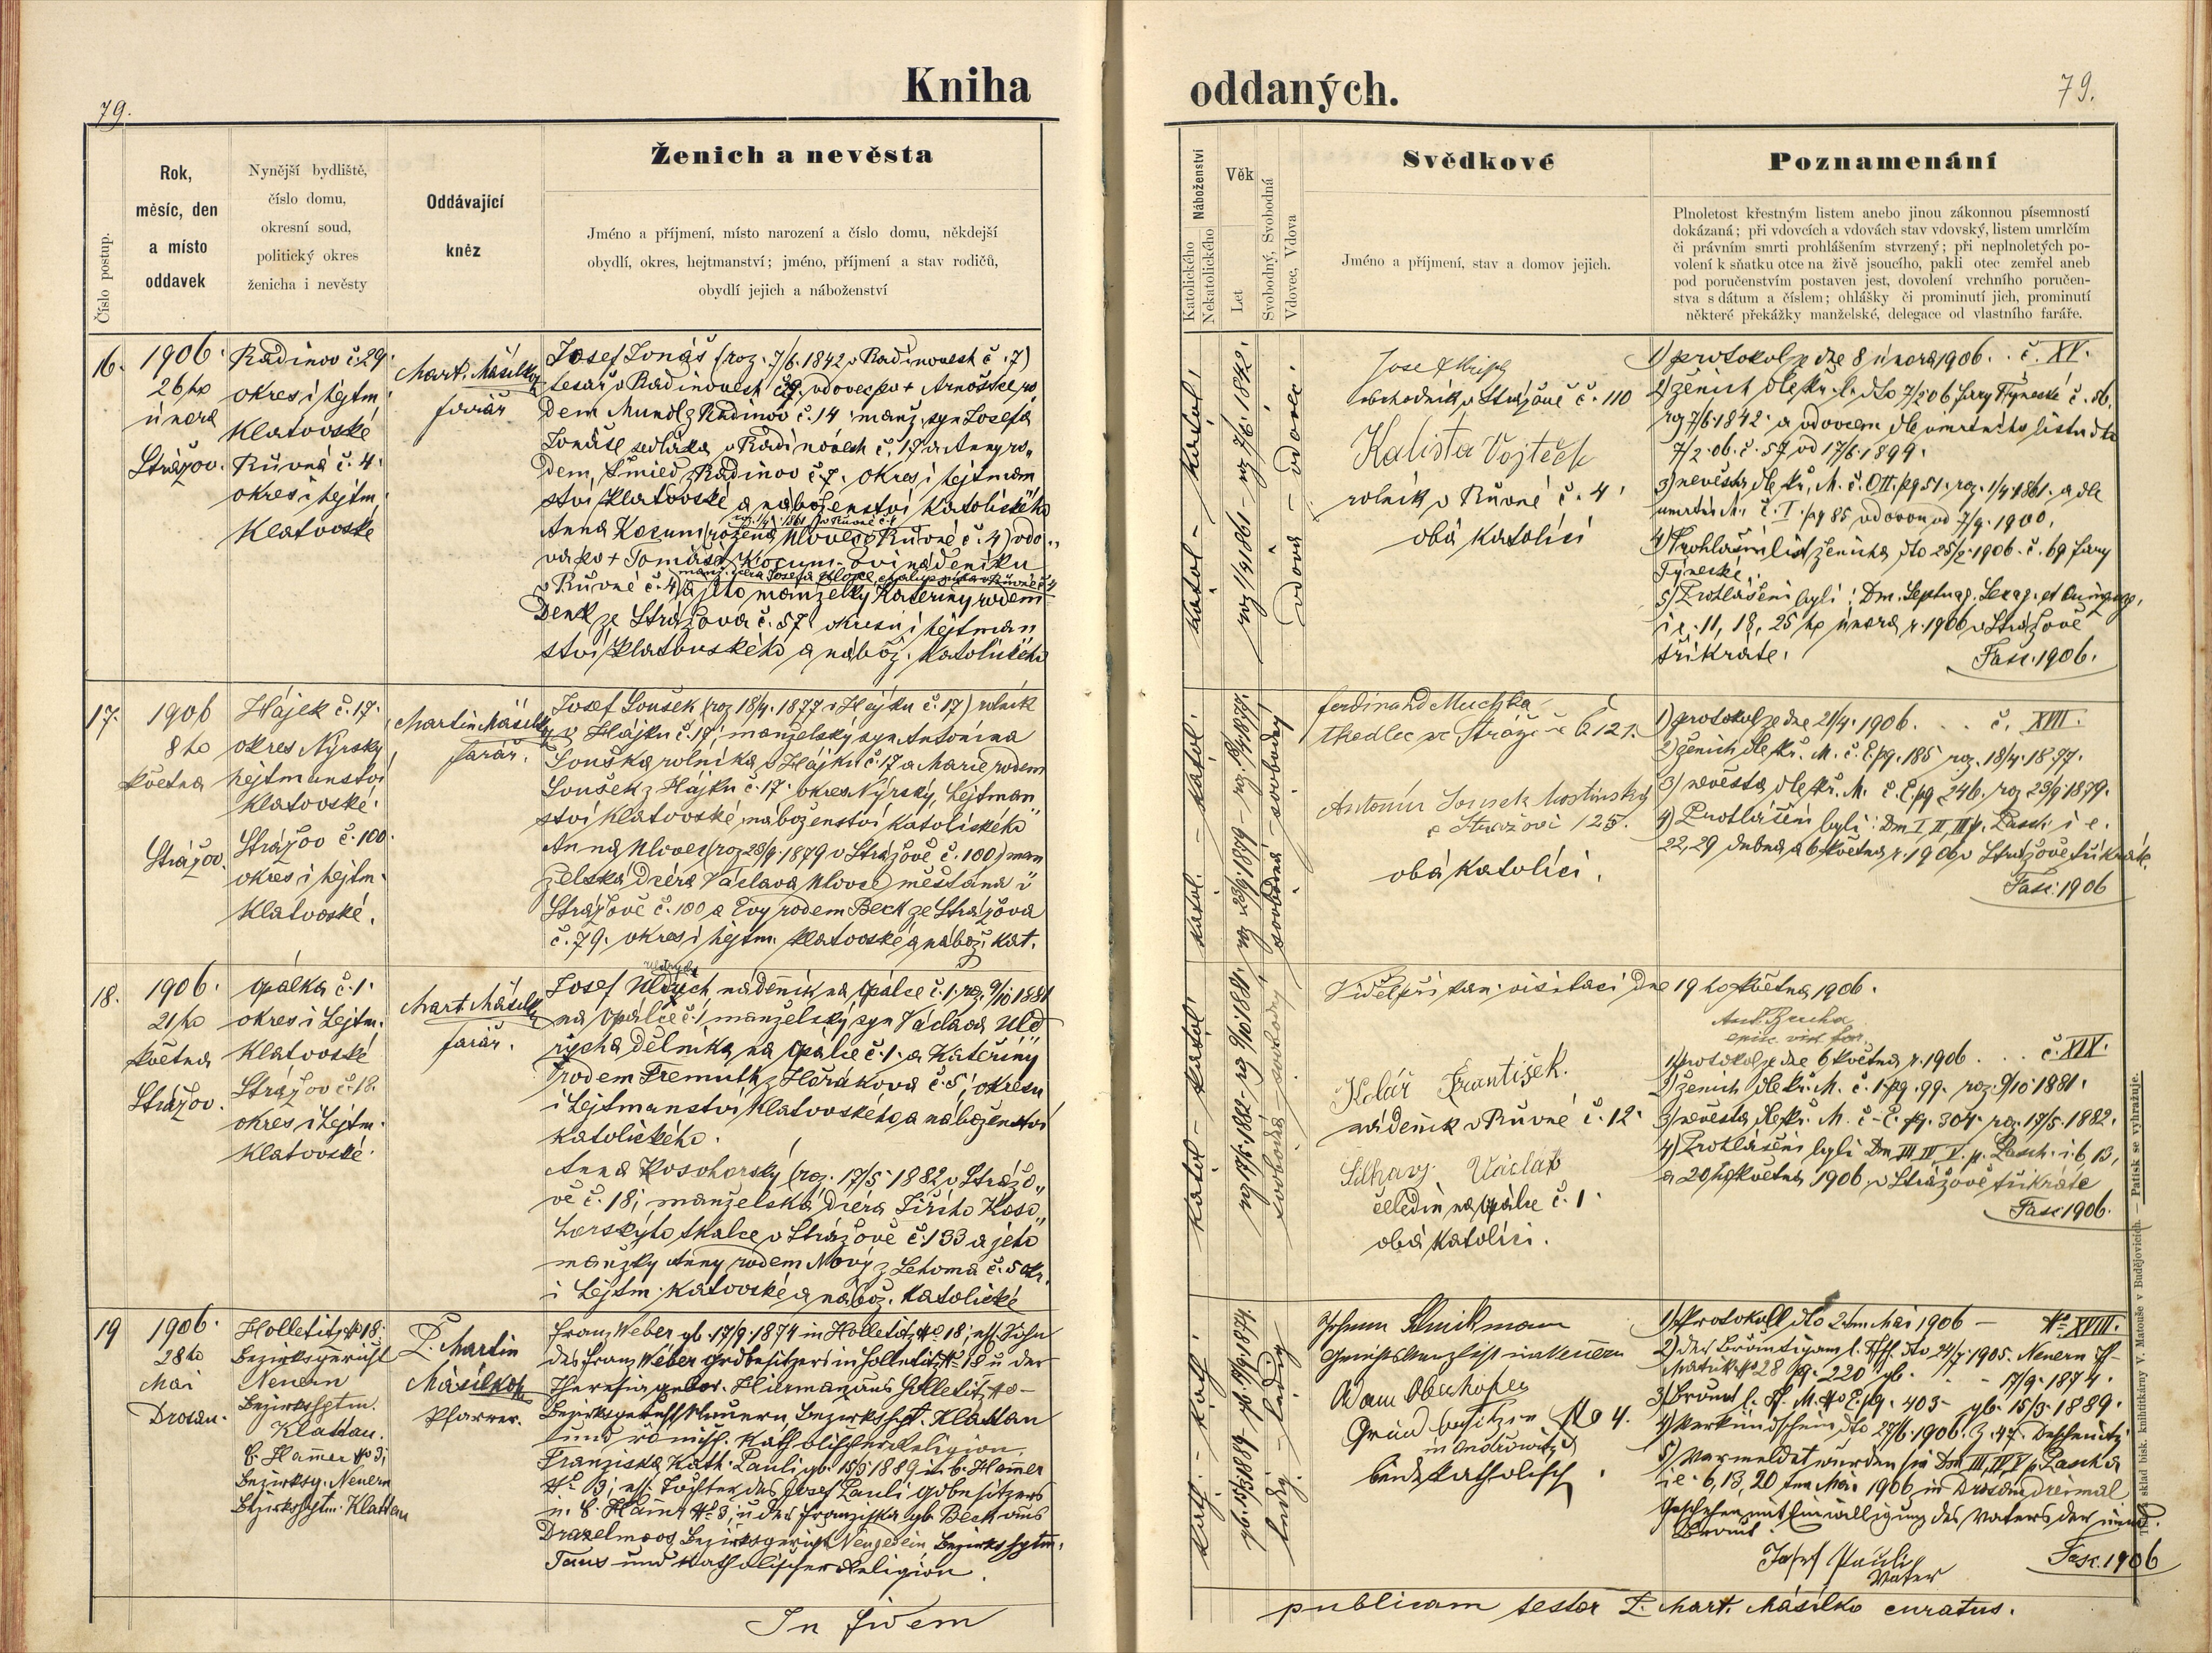 Kniha oddaných.
79.
79.
Číslo postup.
Rok,
měsíc, den
a místo
oddavek
Nynější bydliště,
číslo domu,
okresní soud,
politický okres
ženicha i nevěsty
Oddávající
kněz
Ženich a nevěsta
Jméno a příjmení, místo narození a číslo domu, někdejší
obydlí, okres, hejtmanství; jméno, příjmení a stav rodičů,
obydlí jejich a náboženství
Náboženství
Katolického
Nekatolického
Věk
Let
Svobodný, Svobodná
Vdovec, Vdova
Svědkové
Jméno a příjmení, stav a domov jejich.
Poznamenání
Plnoletost křestným listem anebo jinou zákonnou písemností
dokázaná; při vdovcích a vdovách stav vdovský, listem umrlčím
či právním smrti prohlášením stvrzený; při neplnoletých po-
volení k sňatku otce na živě jsoucího, pakli otec zemřel aneb
pod poručenstvím postaven jest, dovolení vrchního poručen-
stva s dátum a číslem; ohlášky či prominutí jich, prominutí
některé překážky manželské, delegace od vlastního faráře.
16.
1906.
26ho
února
Strážov.
Radinov č. 29.
okres i hejtm.
Klatovské
Růvná č. 4.
okres i hejtm.
Klatovské
Mart. Másilko
farář
Josef Jonáš (roz. 7/6. 1842 v Radinovech č. 7)
tesař v Radinovech č. 29, vdovec po + Arnoštce, ro
dem Mundl z Radinov č. 14. manž. syn Josefa
Jonáše sedláka v Radinovech č. 17 a Anny ro„
dem, Šmied z Radinov č. 7. okres i hejtman
ství Klatovské a náboženství katolického
roz. 1/4. 1861 v Růvné č. 4
Anna Kocum (rozená Hlovec z Růvné č. 4) vdo„
va po + Tomáši Kocum-ovi nádeníku
manž. dcera Josefa Hlovce, chalupníka v Růvné č. 4
v Růvné č. 4) a jeho manželky Kateřiny rodem
Denk ze Strážova č. 57. okresu i hejtman
ství Klatovského a nábož. katolického
katol. - katol.
roz 1/4 1861 - roz 7/6. 1842.
vdova - vdovec.
obchodník v Strážově č. 110
Kalista Vojtěch
rolník v Růvné č. 4.
obá katolíci
1) protokol ze dne 8 února 1906. . č. XV.
2) ženich dle kř. l. dto 7/2 06 fary Týnecké č. 56.
roz 7/6. 1842. a vdovcem dle úmrtního listu dto
7/2. 06. č. 57 od 17/6. 1899.
3) nevěsta dle kř. M. č. OII. pg 51. roz. 1/4 1861. a dle
umrtní M. č. I. pg 85 vdovou od 7/9. 1900.
4) Prohlášní list ženicha dto 25/2. 1906. č. 69 fary
Týnecké.
5) Prohlášeni byli: Dm. Septuag. Sexag. et Quinquag.
i e. 11, 18, 25 ho února r. 1906 v Strážově
třikráte.
Fasc. 1906.
17.
1906
8ho
května
Strážov.
Hájek č. 17.
okres Nýrský
hejtmanství
Klatovské.
Strážov č. 100.
okres i hejtm.
Klatovské.
Martin Másilko
farář.
Josef Soušek (roz 18/4. 1877 v Hájku č. 17) rolník
v Hájku č. 17, manželský syn Antonína
Souška rolníka v Hájku č. 17 a Marie rodem
Soušek z Hájku č. 17. okres Nýrský, hejtman
ství Klatovské, náboženství katolického
Anna Hlovec (roz 23/9. 1879 v Strážově č. 100) man
želská dcera Václava Hlovce měšťana v
Strážově č. 100 a Evy rodem Beck ze Strážova
č. 79. okres i hejtm. Klatovské a nábož. kat.
katol. - katol.
roz 23/9. 1879 - roz. 18/4 1877.
svobodná - svobodný
Ferdinand Muchka
Antonín Soušek
v Strážově 125.
obá katolíci.
1) protokol ze dne 21/4. 1906. . . č. XVII.
2) ženich dle kř. M. č. E. pg. 185 roz. 18/4. 1877.
3) nevěsta dle kř. M. č. E. pg 246. roz 23/9. 1879.
4) Prohlášeni byli: Dm I, II, III p. Pasch. i e.
22, 29 dubna a 6 května r. 1906 v Strážově třikráte.
Fasc. 1906
18.
1906.
21ho
května
Strážov.
Opálka č. 1.
okres i hejtm.
Klatovské
Strážov č. 18.
okres i hejtm.
Klatovské.
Mart. Másilko
farář.
Uldrych
Josef Uldrych nádeník na Opálce č. 1. roz. 9/10 1881
na Opálce č. 1, manželský syn Václava Uld
rycha dělníka na Opálce č. 1. a Kateřiny
rodem Premuth z Horákova č. 5, okresu
i hejtmanství Klatovského a náboženství
katolického.
Anna Kosohorský (roz. 17/5 1882 v Strážo„
vě č. 18, manželská dcera Jiřího Koso„
horskýho tkalce v Strážově č. 133 a jeho
manžky Anny rodem Nový z Lehoma č. 5 okr.
i hejtm. Klatovské a nábož. katolické
katol - katol
roz 17/5. 1882 - roz 9/10 1881.
svobodná - svobodný
Viděl při kan. visitaci dne 19 ho května 1906.
Kolář František.
nádeník v Růvné č. 12.
Silhavý Václav
čeledín na Opálce č. 1.
obá katolíci.
1) protokol ze dne 6 května r. 1906 . . . č. XIX.
2) ženich dle kř. M. č. 1. pg. 99. roz. 9/10 1881.
3) nevěsta dle kř. M. č. E. pg. 304. roz. 17/5. 1882.
4) Prohlášeni byli Dm III IV V. p. Pasch. i. 6, 13,
a 20 ho května 1906 v Strážově třikráte
Fasc 1906.
19
1906.
28ho
Mai
Drosau.
Holletitz No 18.
Bezirksgericht
Neuern
Bezirkshptm.
Klattau.
b. Hammer No 3,
Bezirksg. Neuern
Bezirkshptm. Klattau
P. Martin
Másilko
Pfarrer.
Franz Weber gb. 17/9. 1874 in Holletitz No 18, ehl. Sohn
des Franz Weber Grdbesitzers in Holletitz No 18 u. der
Theresia gebor. Hiermann aus Holletitz No -
Bezirksgericht Neuern Bezirkshpt. Klattau
und römisch. katholischer Religion.
Franziska Kath. Pauli gb. 15/3 1889 in b. Hammer
No 3, ehl. Tochter des Josef Pauli Gdbesitzers
in b. Hammer No 3, u. der Franziska gb. Beck aus
Draxelmoos Bezirksgericht Neugedein Bezirkshptm.
Taus und katholischer Religion.
kath. - kath.
gb. 15/3 1889 - gb. 17/9. 1874.
ledig - ledig
Johann
Gerichtskanzlist in Neuern
Adam Oberhofer
Grundbesitzer No 4.
beide katholisch.
1) Protokoll dto 2ten Mai 1906 - No XVIII.
2) der Bräutigam l. Tfsch. dto 24/7. 1905. Neuern Tf-
Matrik No 28 pg. 220 gb. - 17/9. 1874.
3) Braut l. Tf. M. No E. pg. 403 - gb. 15/3. 1889.
4) Verkündschein dto 27/5. 1906. Z. 47. Deschenitz
5) Vermeldet wurden sie Dm III, IV, V p. Pascha
i e. 6, 13, 20 ten Mai 1906 in Drosau dreimal
Geschehen mit Einwilligung des Vaters der mind.
Braut.
Josef Pauli
Vater
Fasc. 1906
In fidem publicam testor P. Mart. Másilko curatus.
sklad bisk. knihtiskárny V. Matouše v Budějovicích. — Patisk se vyhražuje.